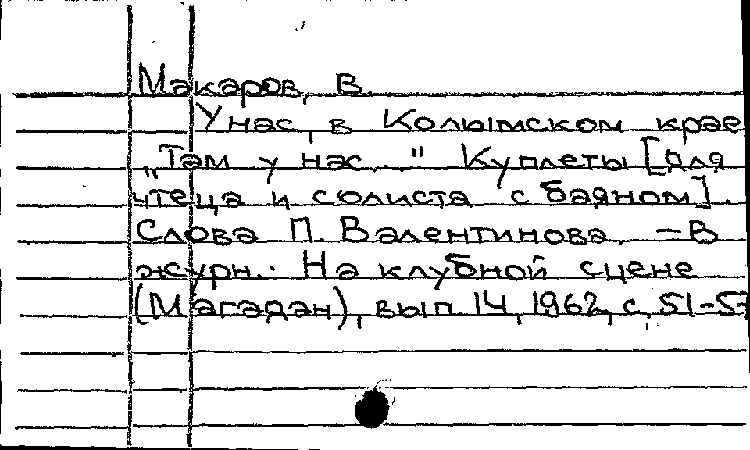 Макаров, В.
У нас, в Колымском крае
„Там у нас..." Куплеты [для
чтеца и солиста с баяном].
Слова П. Валентинова. – В
журн.: На клубной сцене
(Магадан), вып. 14, 1962, с. 51-57